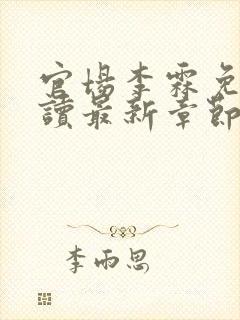 官場李霖免
讀最新章節
李雨思